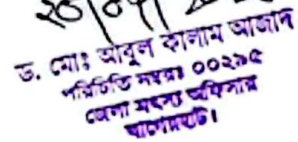 ২০/০৭/
ড. মোঃ আবুল কালাম আজাদ
পরিচিতি নম্বরঃ ০০২৯৫
জেলা মৎস্য অফিসার
বাগেরহাট।